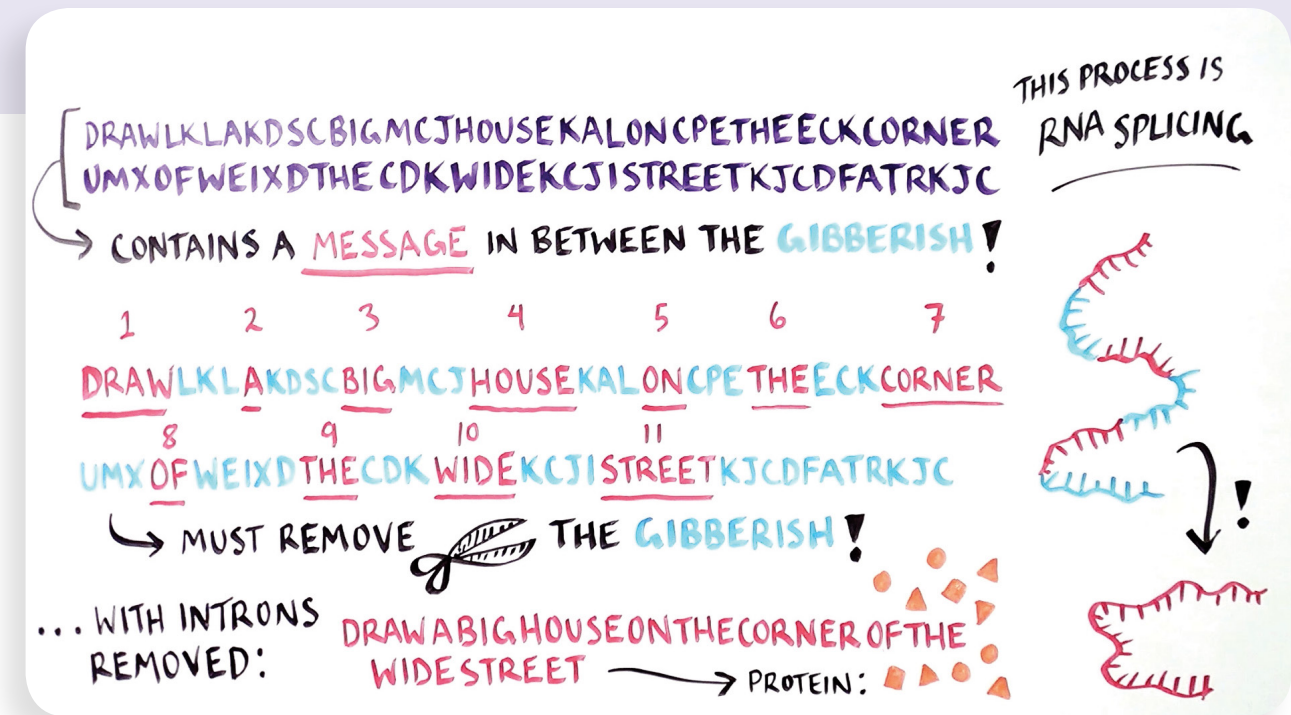 THIS PROCESS IS
RNA SPLICING
DRAWLKLAKDSCBIGMCJHOUSEKALONCPETHEECKCORNER
UMXOFWEIXDTHECDKWIDEKCJISTREETKJCDFATRKJC
CONTAINS A MESSAGE IN BETWEEN THE GIBBERISH!
1 2 3 4 5 6 7
DRAWLKLAKDSCBIGMCJHOUSEKALONCPETHEECKCORNER
8 9 10 11
UMXOFWEIXDTHECDKWIDEKCJISTREETKJCDFATRKJC
MUST REMOVE THE GIBBERISH!
!
... WITH INTRONS
REMOVED:
DRAWABIGHOUSEONTHECORNEROFTHE
WIDESTREET
PROTEIN: